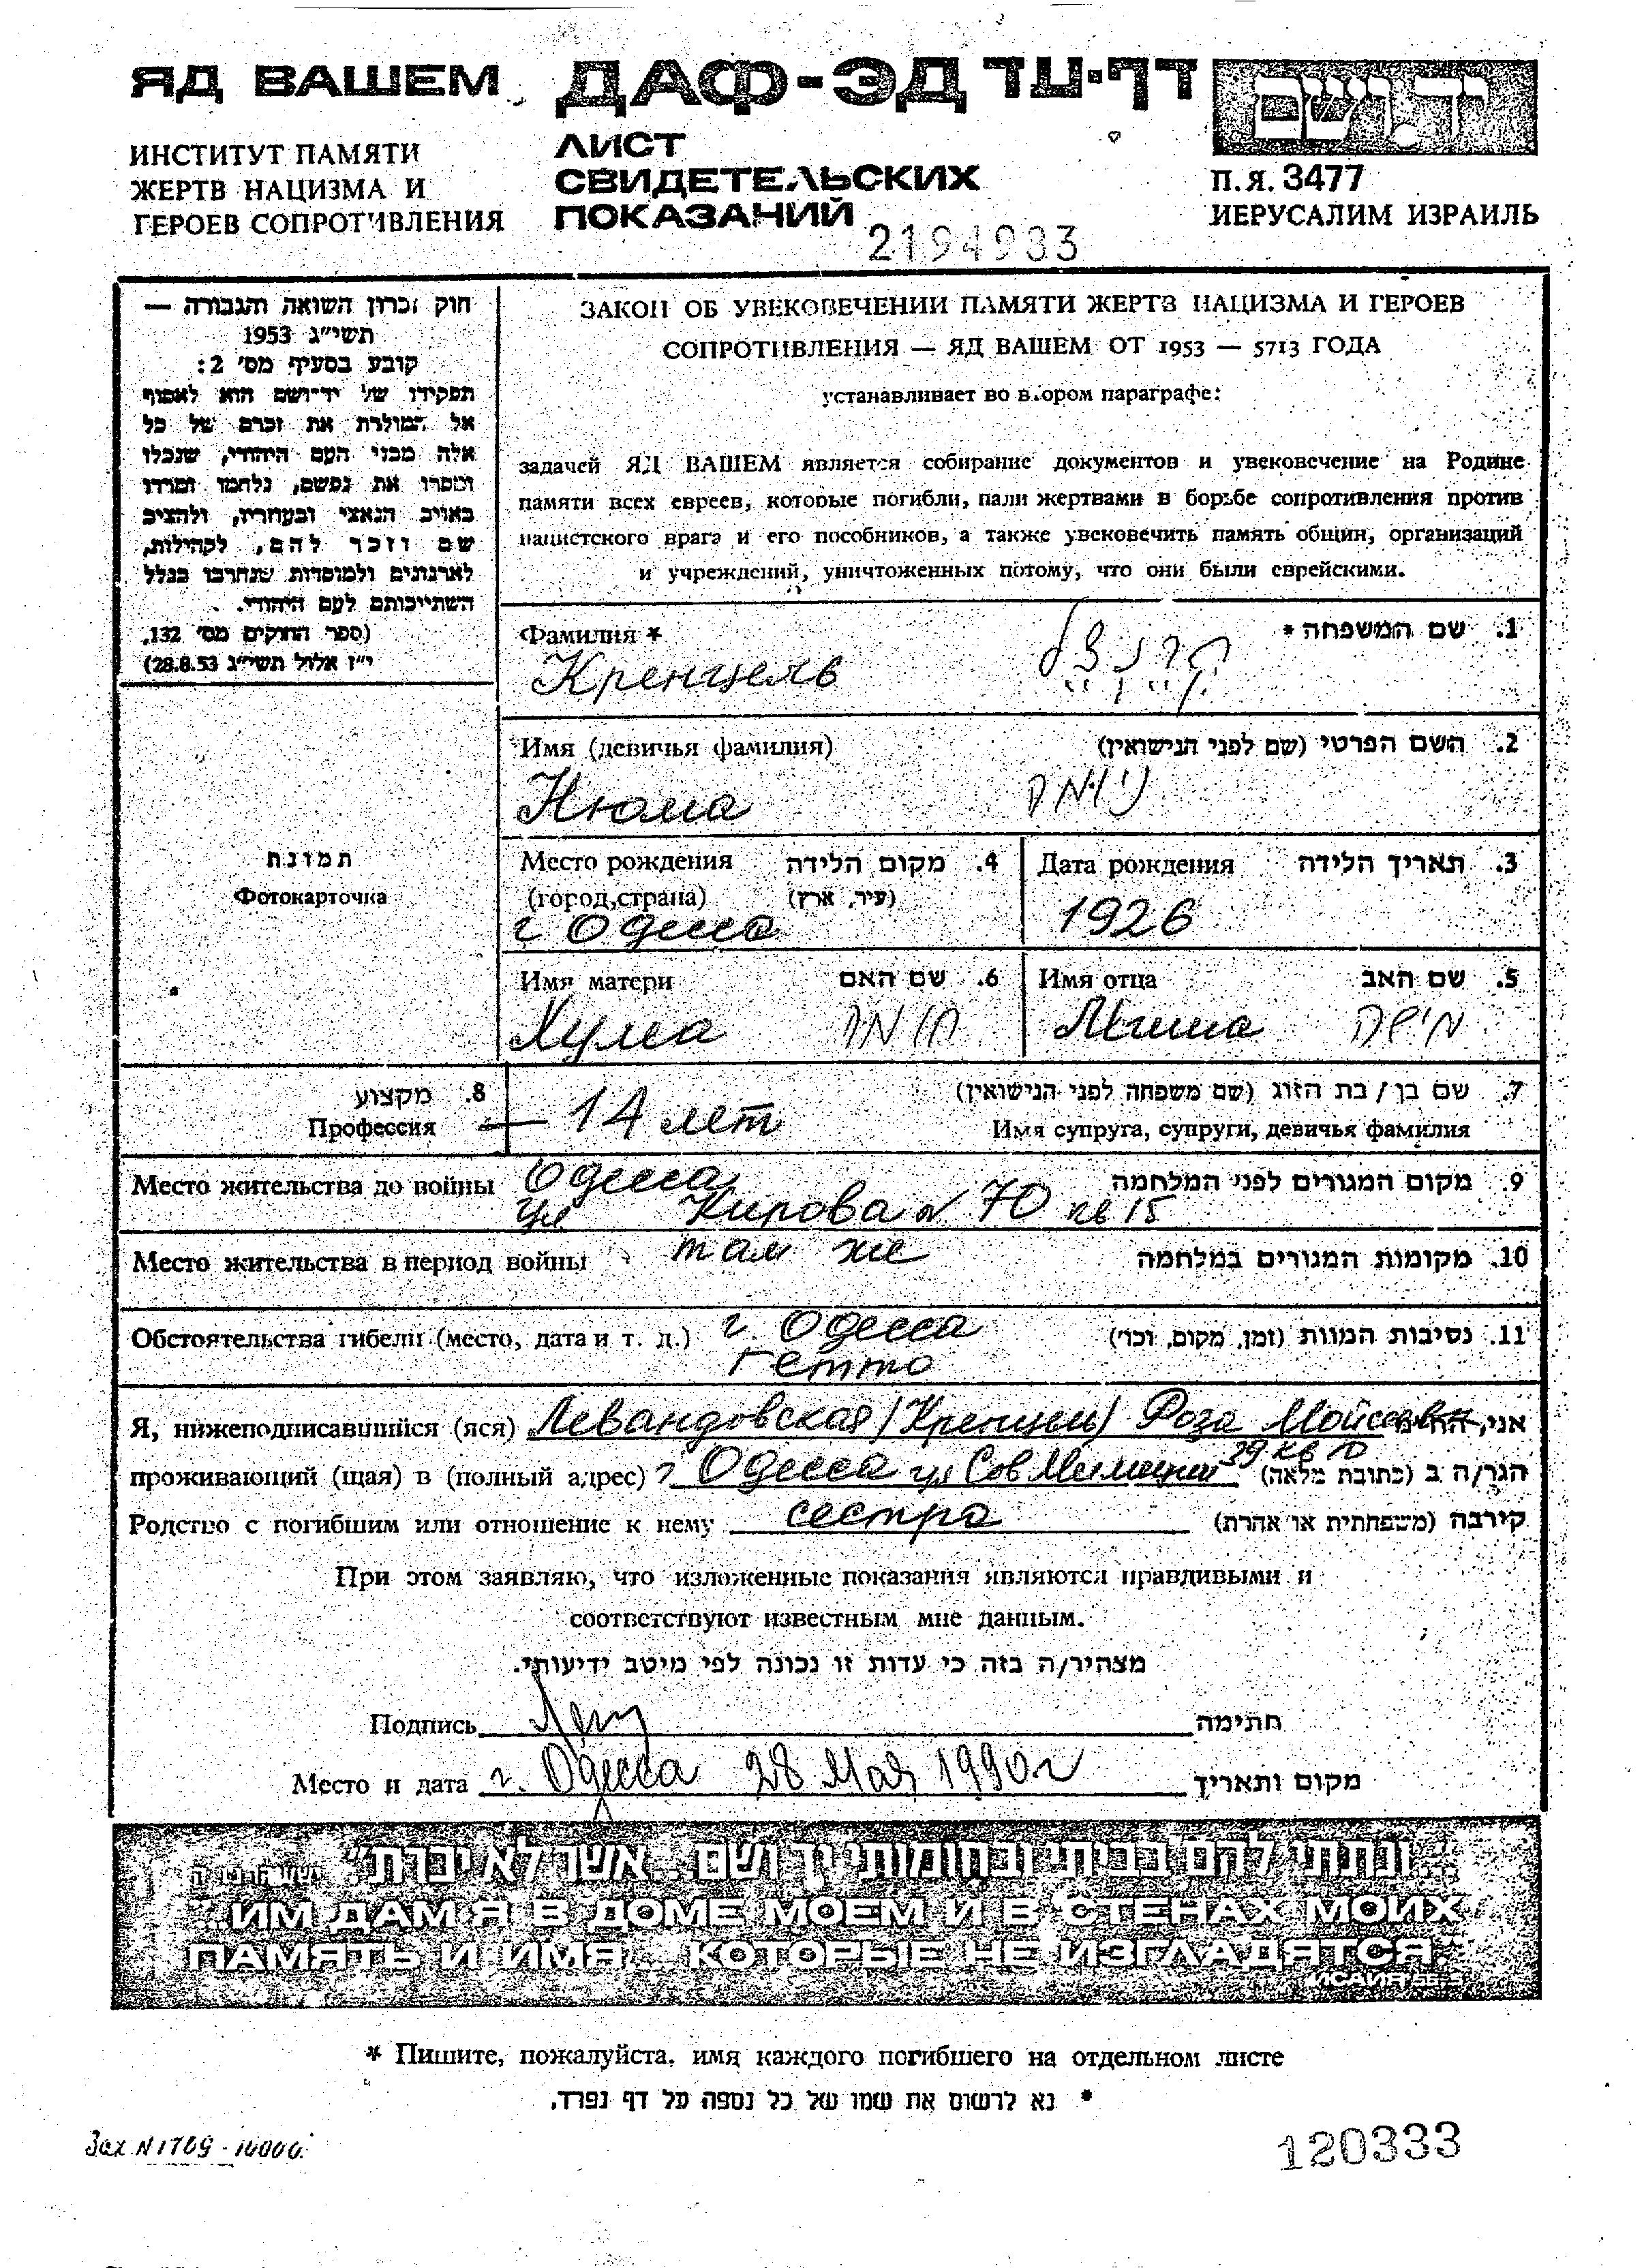 ЯД ВАШЕМ
ИНСТИТУТ ПАМЯТИ
ЖЕРТВ НАЦИЗМА И
ГЕРОЕВ СОПРОТИВЛЕНИЯ
ДАФ-ЭД דף-עד
ЛИСТ
СВИДЕТЕЛЬСКИХ
ПОКАЗАНИЙ
2194933
יד ושם
П.Я. 3477
ИЕРУСАЛИМ ИЗРАИЛЬ
חוק זכרון השואה והגבורה —
תשי"ג 1953
קובע בסעיף מס' 2:
תפקידו של יד-ושם הוא לאסוף
אל המולדת את זכרם של כל
אלה מבני העם היהודי, שנפלו
ומסרו את נפשם, נלחמו ומרדו
באויב הנאצי ובעוזריו, ולהציב
שם וזכר להם, לקהילות,
לארגונים ולמוסדות שנחרבו בגלל
השתייכותם לעם היהודי.
(ספר החוקים מס' 132,
י"ז אלול תשי"ג 28.8.53)
ЗАКОН ОБ УВЕКОВЕЧЕНИИ ПАМЯТИ ЖЕРТВ НАЦИЗМА И ГЕРОЕВ
СОПРОТИВЛЕНИЯ — ЯД ВАШЕМ ОТ 1953 — 5713 ГОДА
устанавливает во втором параграфе:
задачей ЯД ВАШЕМ является собирание документов и увековечение на Родине
памяти всех евреев, которые погибли, пали жертвами в борьбе сопротивления против
нацистского врага и его пособников, а также увековечить память общин, организаций
и учреждений, уничтоженных потому, что они были еврейскими.
Фамилия * 1. שם המשפחה *
Кренцель
Имя (девичья фамилия) 2. השם הפרטי (שם לפני הנישואין)
Нюма ניומה
תמונה
Фотокарточка
Место рождения 4. מקום הלידה
(город,страна) (עיר, ארץ)
г Одесса
Дата рождения 3. תאריך הלידה
1926
Имя матери 6. שם האם
Хума חומה
Имя отца 5. שם האב
Миша מישה
8. מקצוע
Профессия
— 14 лет
7. שם בן / בת הזוג (שם משפחה לפני הנישואין)
Имя супруга, супруги, девичья фамилия
Место жительства до войны Одесса 9. מקום המגורים לפני המלחמה
ул Кирова № 70 кв 15
Место жительства в период войны там же 10. מקומות המגורים במלחמה
Обстоятельства гибели (место, дата и т. д.) г. Одесса 11. נסיבות המוות (זמן, מקום, וכו')
гетто
Я, нижеподписавшийся (яся) Левандовская (Кренцель) Роза Мойсеевна אני, הח"מ
проживающий (щая) в (полный адрес) г Одесса ул Сов Милиции 39 кв הגר/ה ב (כתובת מלאה)
Родство с погибшим или отношение к нему сестра קירבה (משפחתית או אחרת)
При этом заявляю, что изложенные показания являются правдивыми и
соответствуют известным мне данным.
מצהיר/ה בזה כי עדות זו נכונה לפי מיטב ידיעותי.
Подпись חתימה
Место и дата г. Одесса 28 Мая 1990г מקום ותאריך
"...ונתתי להם בביתי ובחומותי יד ושם... אשר לא יכרת"
"...ИМ ДАМ Я В ДОМЕ МОЕМ И В СТЕНАХ МОИХ
ПАМЯТЬ И ИМЯ... КОТОРЫЕ НЕ ИЗГЛАДЯТСЯ"
ИСАИЯ 56: 5
* Пишите, пожалуйста, имя каждого погибшего на отдельном листе
* נא לרשום את שמו של כל נספה על דף נפרד.
Зак N 1709 - 10000
120333